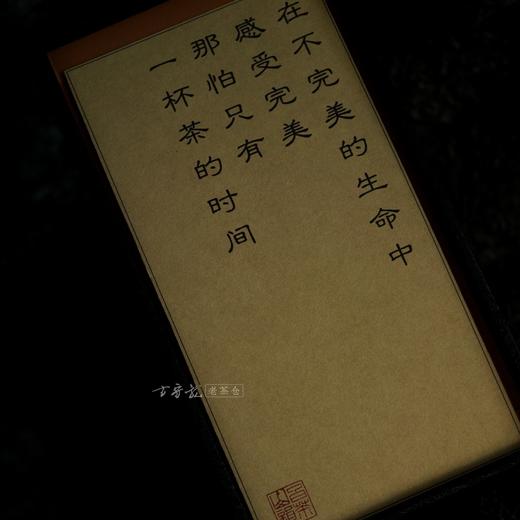 在不完美的生命中
感受完美
那怕只有
一杯茶的时间
老茶仓